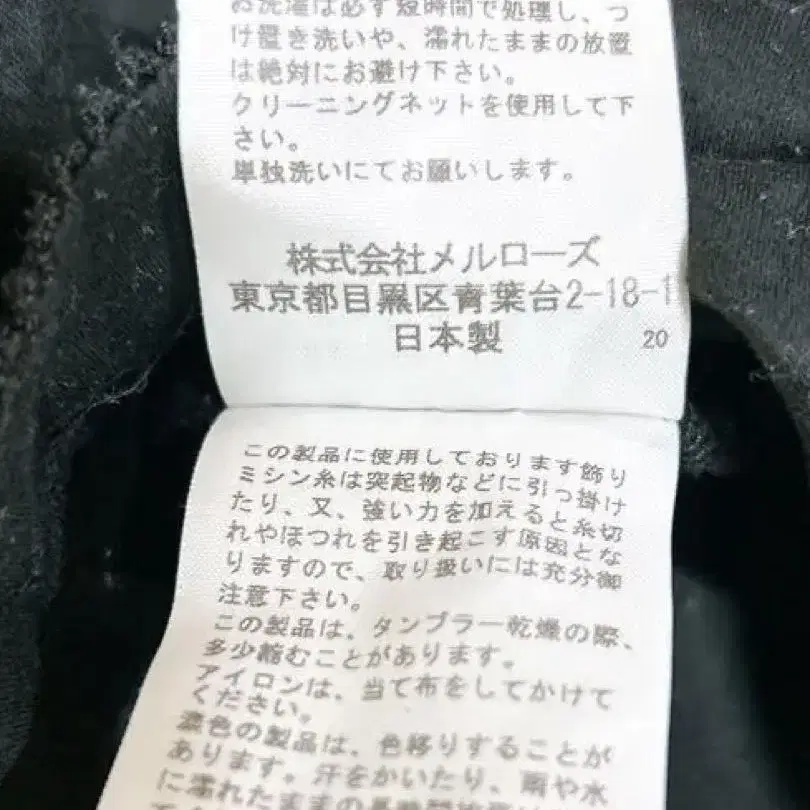 お洗濯は必ず短時間で処理し、つ
け置き洗いや、濡れたままの放置
は絶対にお避け下さい。
クリーニングネットを使用して下
さい。
単独洗いにてお願いします。
株式会社メルローズ
東京都目黒区青葉台2-18-1
日本製
20
この製品に使用しております飾り
ミシン糸は突起物などに引っ掛け
たり、又、強い力を加えると糸切
れやほつれを引き起こす原因とな
りますので、取り扱いには充分御
注意下さい。
この製品は、タンブラー乾燥の際、
多少縮むことがあります。
アイロンは、当て布をしてかけて
ください。
濃色の製品は、色移りすることが
あります。汗をかいたり、雨や水
に濡れたままの長時間